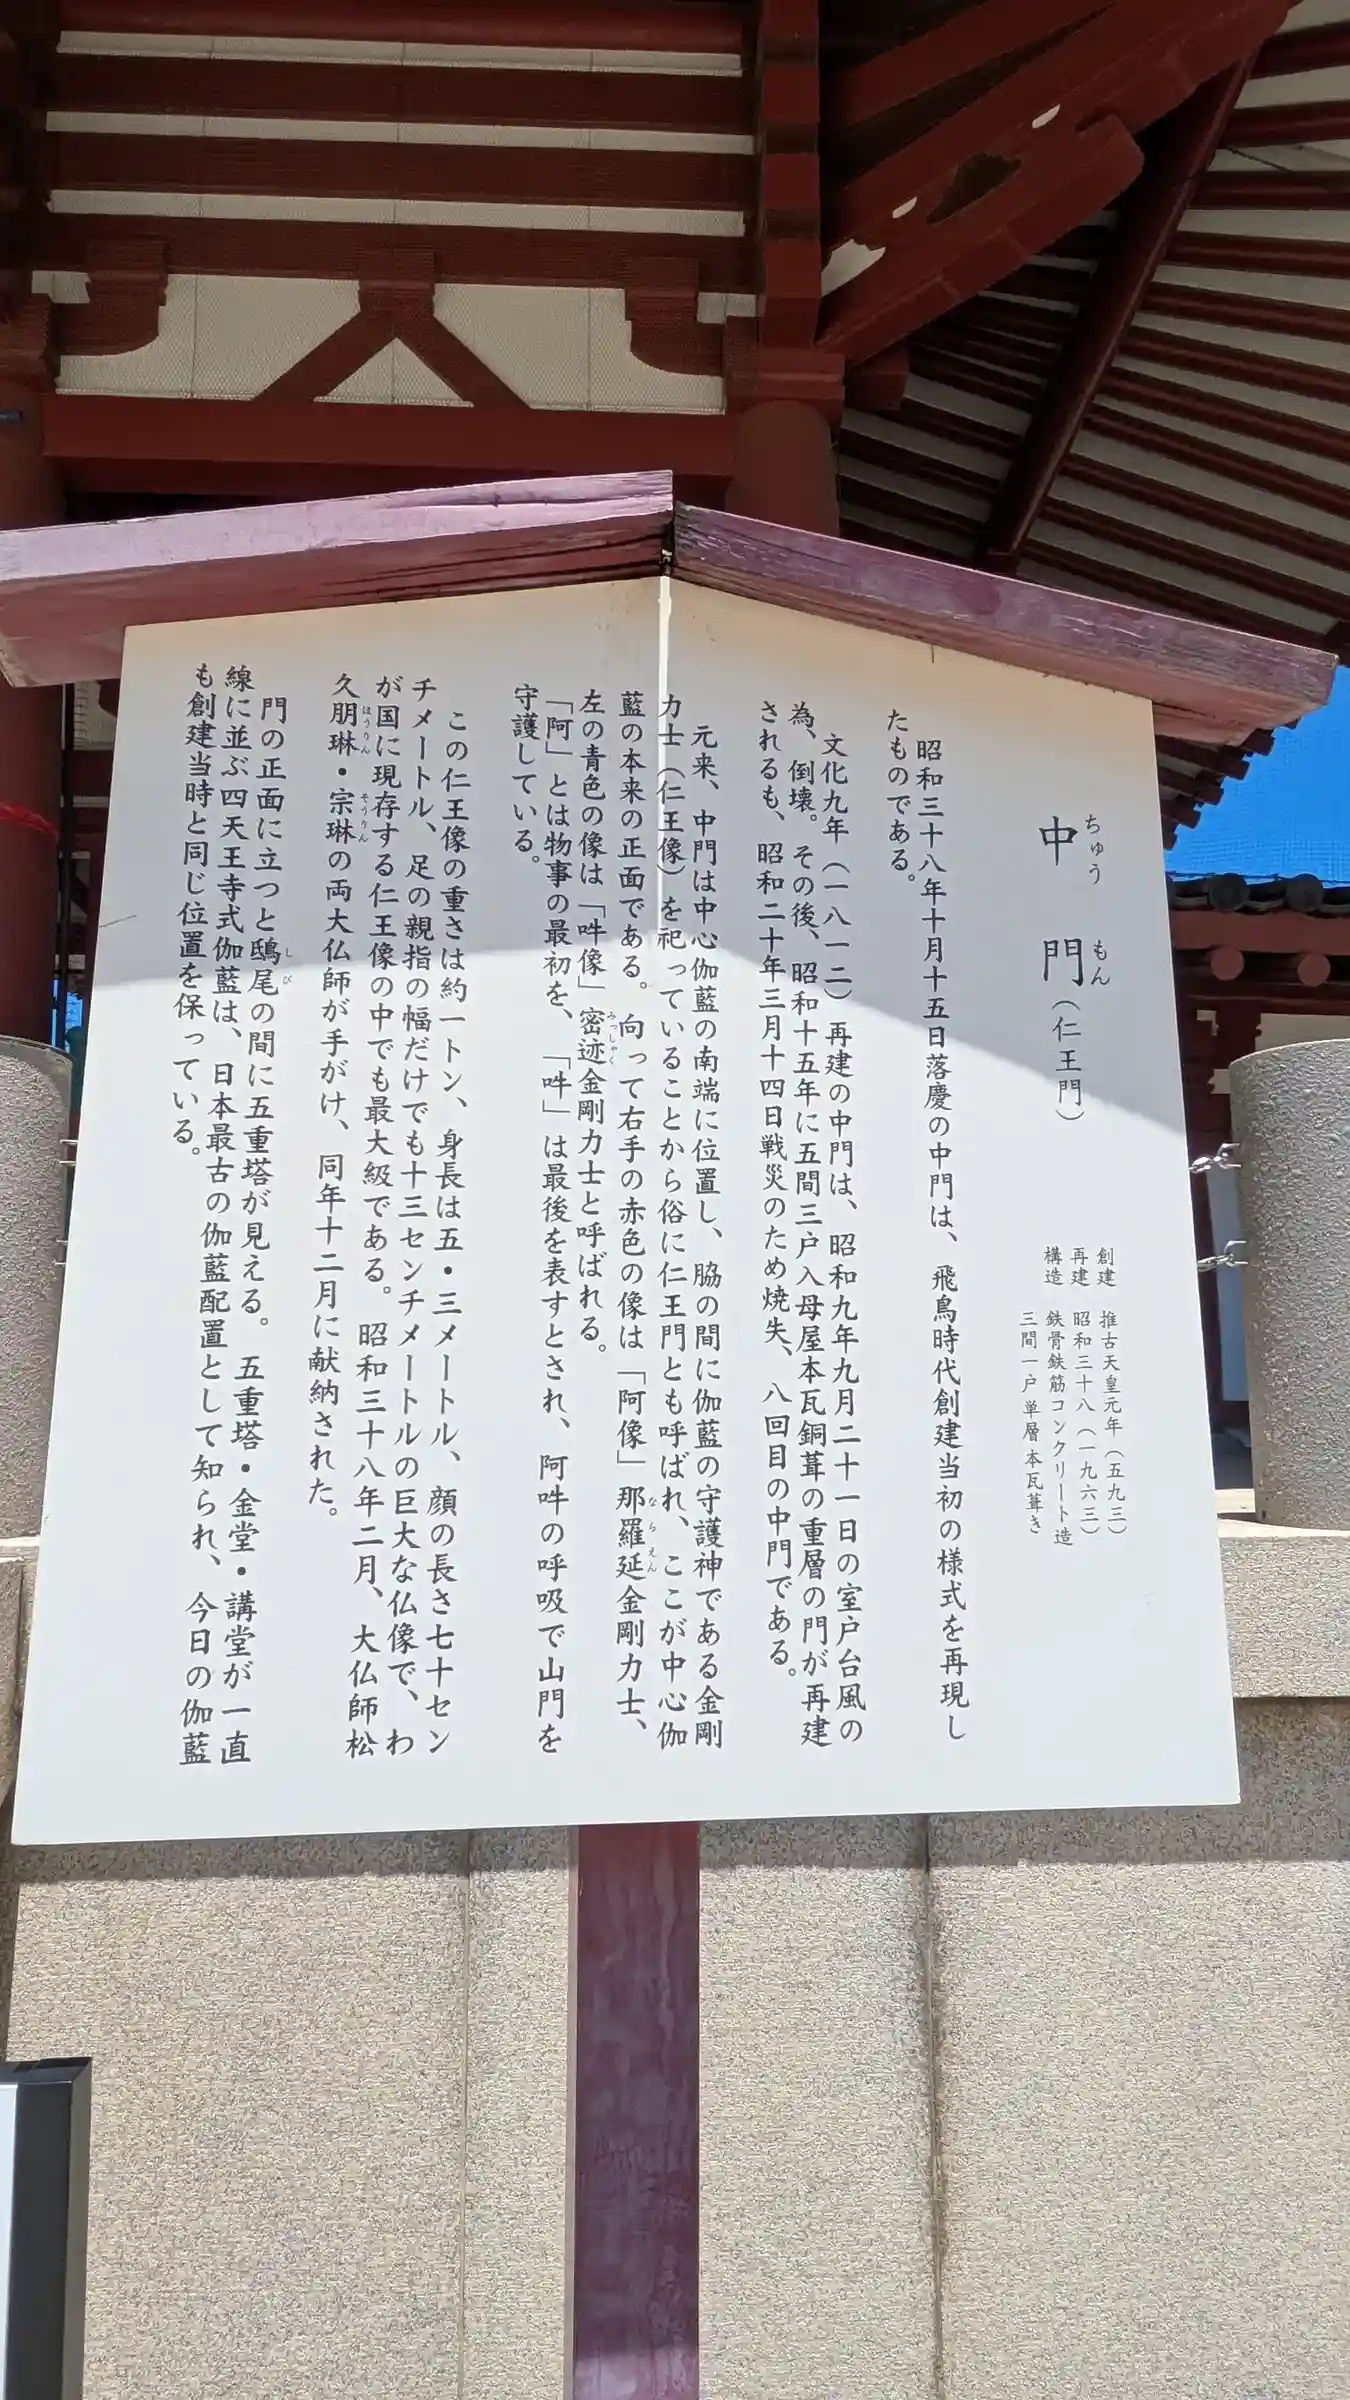 中門（仁王門）
ちゅうもん
創建　推古天皇元年（五九三）
再建　昭和三十八（一九六三）
構造　鉄骨鉄筋コンクリート造
三間一戸単層本瓦葺き
昭和三十八年十月十五日落慶の中門は、飛鳥時代創建当初の様式を再現し
たものである。
文化九年（一八一二）再建の中門は、昭和九年九月二十一日の室戸台風の
為、倒壊。その後、昭和十五年に五間三戸入母屋本瓦銅葺の重層の門が再建
されるも、昭和二十年三月十四日戦災のため焼失、八回目の中門である。
元来、中門は中心伽藍の南端に位置し、脇の間に伽藍の守護神である金剛
力士（仁王像）を祀っていることから俗に仁王門とも呼ばれ、ここが中心伽
藍の本来の正面である。向って右手の赤色の像は「阿像」那羅延金剛力士、
ならえん
左の青色の像は「吽像」密迹金剛力士と呼ばれる。
みっしゃく
「阿」とは物事の最初を、「吽」は最後を表すとされ、阿吽の呼吸で山門を
守護している。
この仁王像の重さは約一トン、身長は五・三メートル、顔の長さ七十セン
チメートル、足の親指の幅だけでも十三センチメートルの巨大な仏像で、わ
が国に現存する仁王像の中でも最大級である。昭和三十八年二月、大仏師松
久朋琳・宗琳の両大仏師が手がけ、同年十二月に献納された。
ほうりん　そうりん
門の正面に立つと鴟尾の間に五重塔が見える。五重塔・金堂・講堂が一直
しび
線に並ぶ四天王寺式伽藍は、日本最古の伽藍配置として知られ、今日の伽藍
も創建当時と同じ位置を保っている。